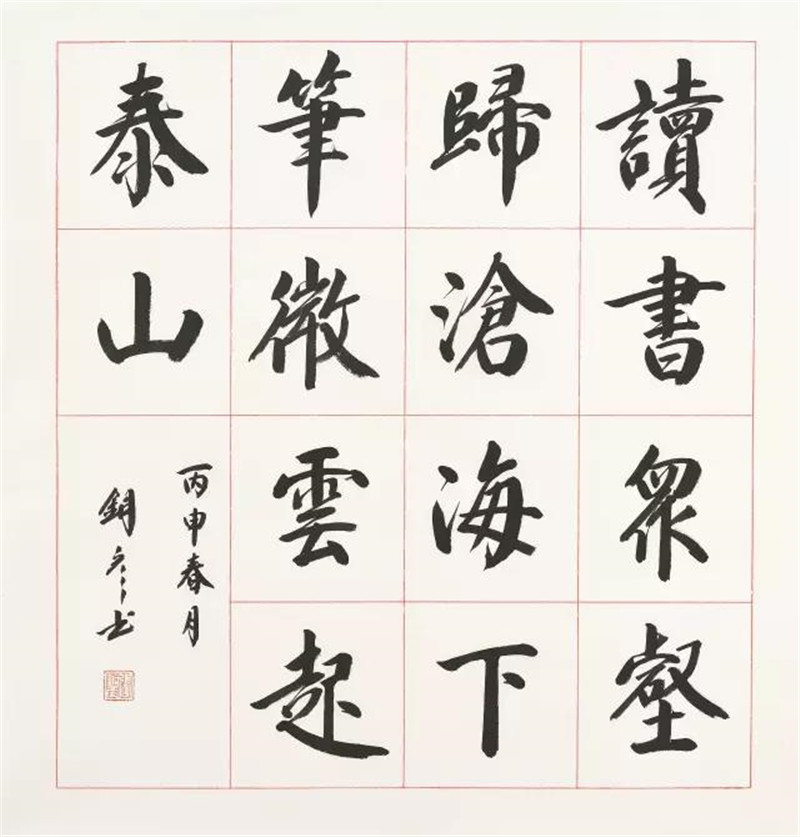 讀書眾壑
歸滄海下
筆微雲起
泰山
丙申春月